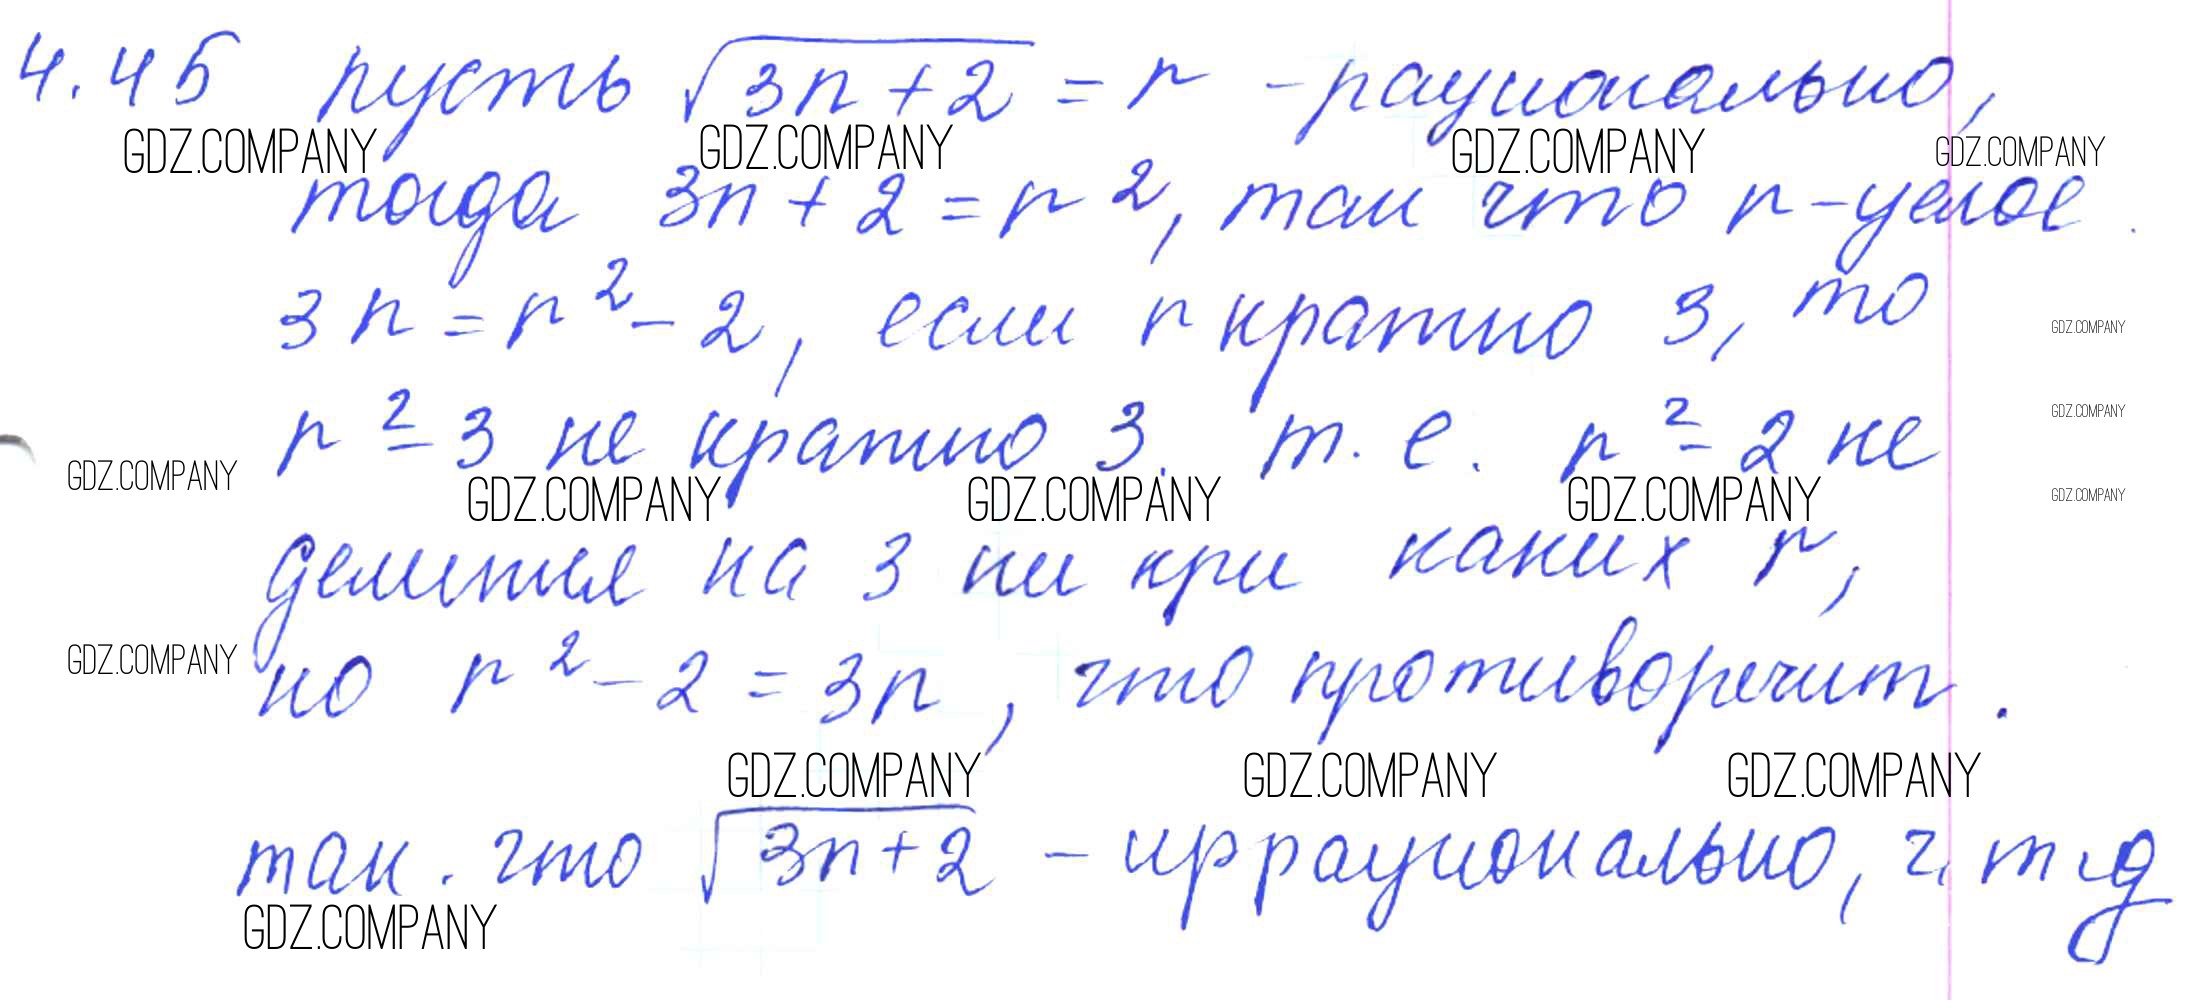 4.45 пусть √3n+2 = r - рационально,
GDZ.COMPANY GDZ.COMPANY GDZ.COMPANY GDZ.COMPANY
тогда 3n + 2 = r², так что r - целое.
3n = r² - 2, если r кратно 3, то
GDZ.COMPANY
r² - 3 не кратно 3. т.е. r² - 2 не
GDZ.COMPANY
GDZ.COMPANY GDZ.COMPANY GDZ.COMPANY GDZ.COMPANY GDZ.COMPANY
делится на 3 ни при каких r,
но r² - 2 = 3n, что противоречит.
GDZ.COMPANY
GDZ.COMPANY GDZ.COMPANY GDZ.COMPANY
так. что √3n+2 - иррационально, ч. т. д
GDZ.COMPANY